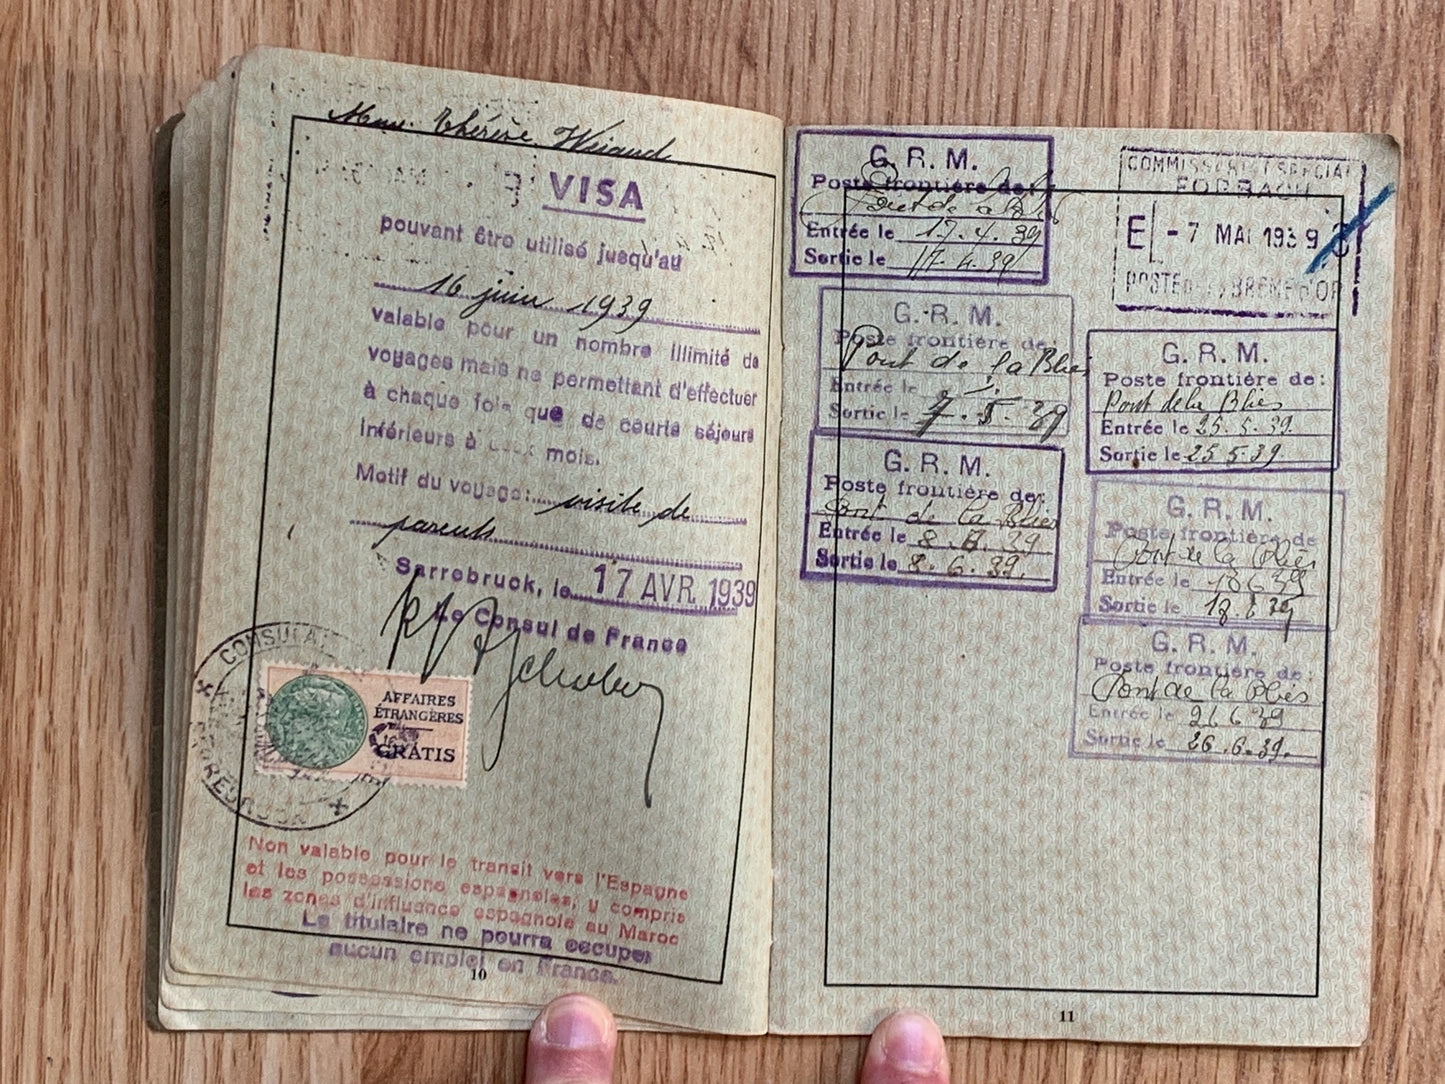 Mme. Thérèse
VISA
pouvant être utilisé jusqu'au
16 juin 1939
valable pour un nombre illimité de
voyages mais ne permettant d'effectuer
à chaque fois que de courts séjours
inférieurs à deux mois.
Motif du voyage: visite de
parents
Sarrebruck, le 17 AVR. 1939
Le Consul de France
CONSULAT
SARREBRUCK
AFFAIRES
ÉTRANGÈRES
GRATIS
Non valable pour le transit vers l'Espagne
et les possessions espagnoles, y compris
les zones d'influence espagnole au Maroc
Le titulaire ne pourra occuper
aucun emploi en France.
10
G. R. M.
Poste frontière de:
Pont de la
Entrée le 17.4.39
Sortie le 17.4.39
G. R. M.
Poste frontière de:
Pont de la Blies
Entrée le
Sortie le 7.5.39
G. R. M.
Poste frontière de:
Pont de la Blies
Entrée le 8.6.39
Sortie le 8.6.39.
COMMISSARIAT SPECIAL
FORBACH
E - 7 MAI 1939
G. R. M.
Poste frontière de:
Pont de la Blies
Entrée le 25.5.39.
Sortie le 25 5 39
G. R. M.
Poste frontière de
Pont de la Blies
Entrée le 18 6 39
Sortie le 18.6.39
G. R. M.
Poste frontière de:
Pont de la Blies
Entrée le 26 6 39
Sortie le 26.6.39.
11